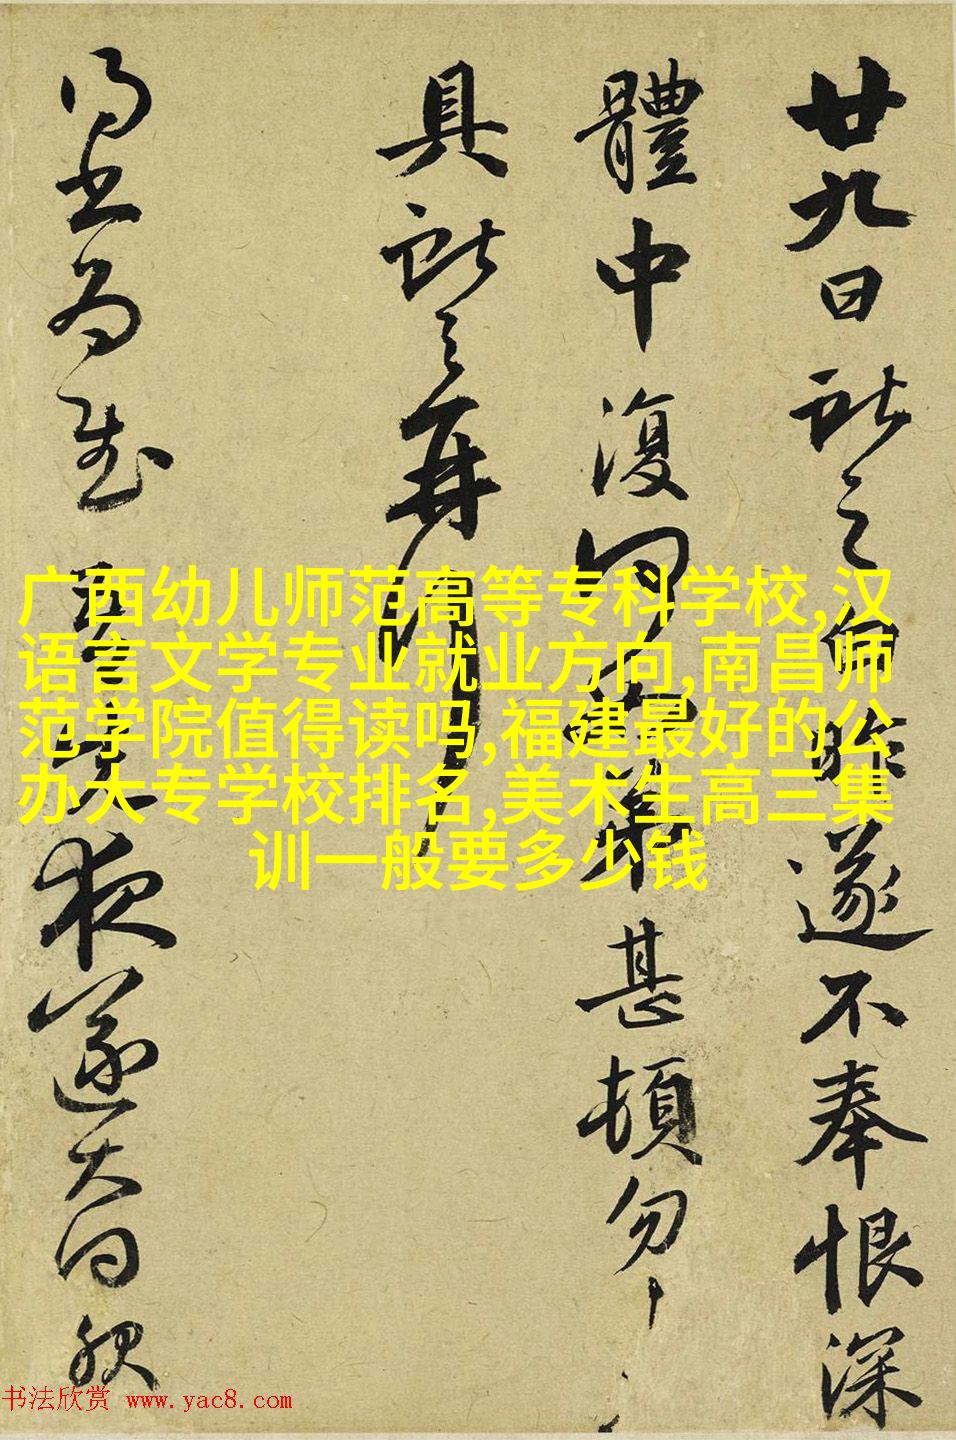 廿九日獻之白昨遂不奉恨深
體中復何如弟甚頓匆匆
具獻之再拜
夜遂大
广西幼儿师范高等专科学校,汉
语言文学专业就业方向,南昌师
范学院值得读吗,福建最好的公
办大专学校排名,美术生高三集
训一般要多少钱
书法欣赏 www.yac8.com